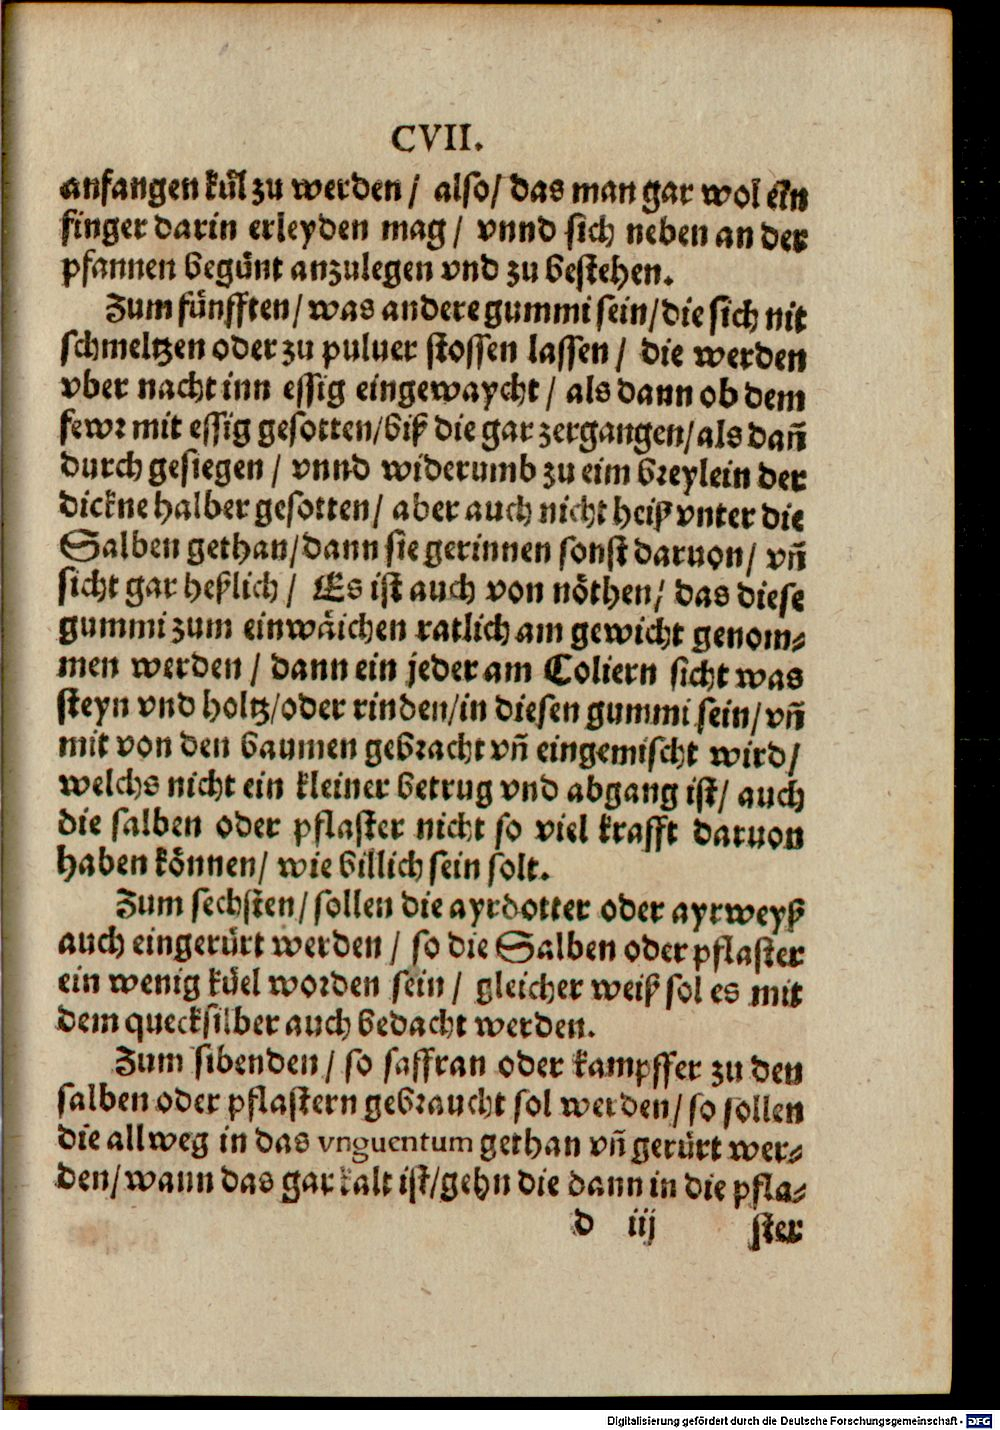 CVII.
anfangen kül zu werden / also / das man gar wol ein
finger darin erleyden mag / vnnd sich neben an der
pfannen begünt anzulegen vnd zu bestehen.
Zum fünfften / was andere gummi sein / die sich nit
schmeltzen oder zu puluer stossen lassen / die werden
vber nacht inn essig eingewaycht / als dann ob dem
fewr mit essig gesotten / biß die gar zergangen / als dañ
durch gesiegen / vnnd widerumb zu eim breylein der
dickne halber gesotten / aber auch nicht heiß vnter die
Salben gethan / dann sie gerinnen sonst daruon / vñ
sicht gar heßlich / Es ist auch von nöthen / das diese
gummi zum einwäichen ratlich am gewicht genom-
men werden / dann ein jeder am Coliern sicht was
steyn vnd holtz / oder rinden / in diesen gummi sein / vñ
mit von den baumen gebracht vñ eingemischt wird /
welchs nicht ein kleiner betrug vnd abgang ist / auch
die salben oder pflaster nicht so viel krafft daruon
haben können / wie billich sein solt.
Zum sechsten / sollen die ayrdotter oder ayrweyß
auch eingerürt werden / so die Salben oder pflaster
ein wenig küel worden sein / gleicher weiß sol es mit
dem quecksilber auch bedacht werden.
Zum sibenden / so saffran oder kampffer zu den
salben oder pflastern gebraucht sol werden / so sollen
die allweg in das vnguentum gethan vñ gerürt wer-
den / wann das gar kalt ist / gehn die dann in die pfla-
d iij ster
Digitalisierung gefördert durch die Deutsche Forschungsgemeinschaft - DFG